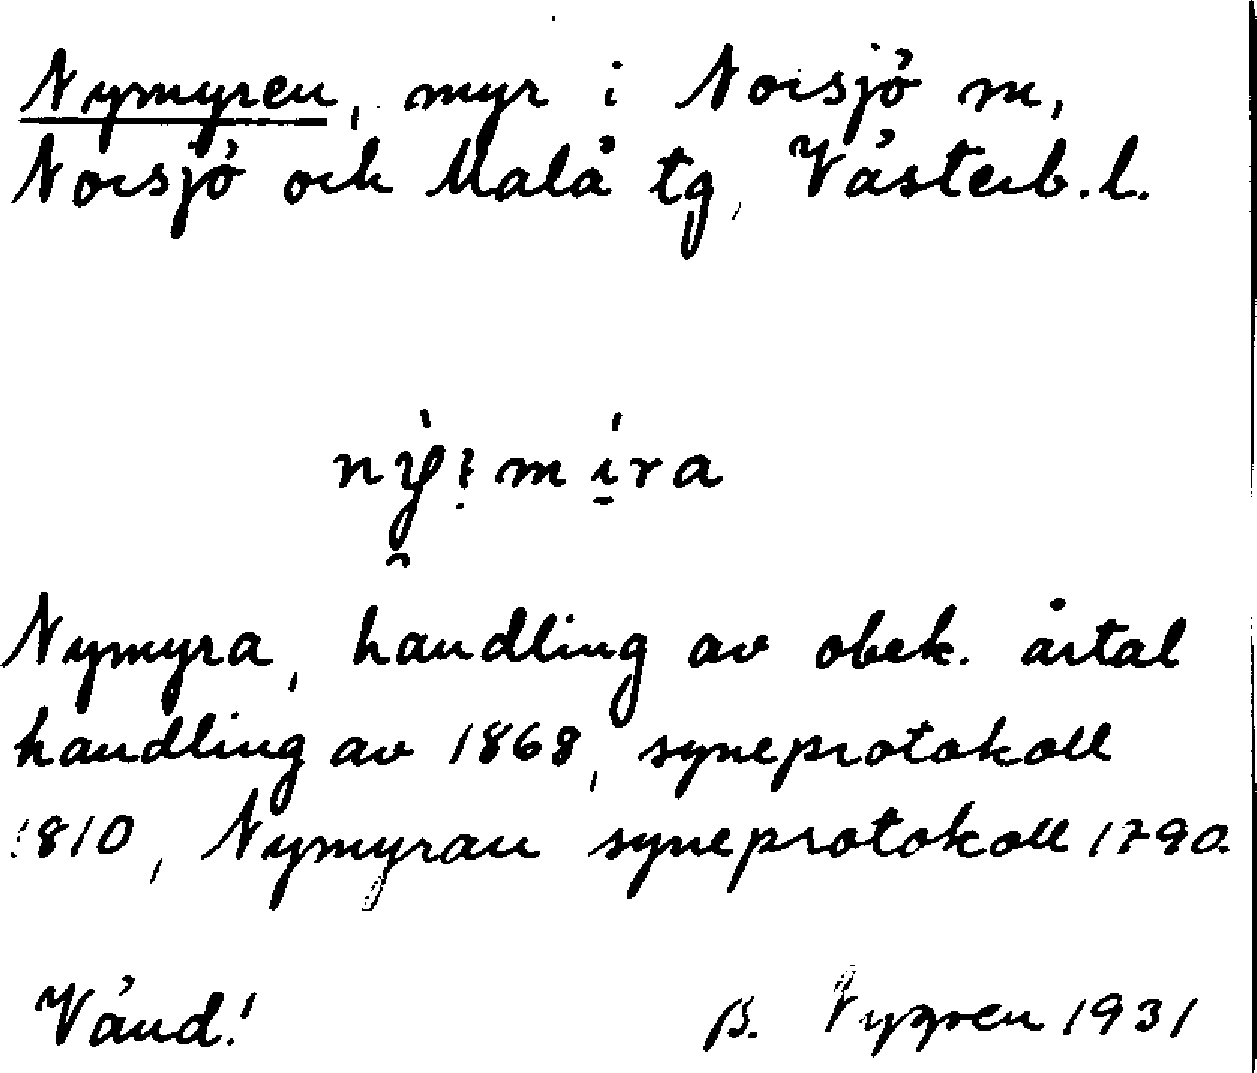 Nymyren, myr i Norsjö sn,
Norsjö och Malå tg, Västerb. l.
Nymyra, handling av obek. årtal
handling av 1868, syneprotokoll
1810, Nymyran syneprotokoll 1790.
Vänd! B. 1931